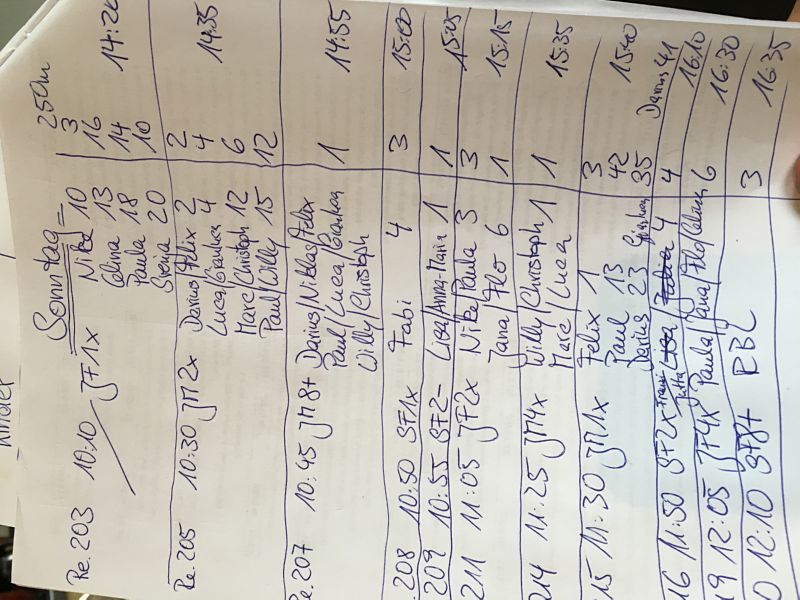 Sonntag
250m
Re. 203 10:10 JF1x Nike 10 3 14:20
Celina 13 16
Paula 18 14
Svenja 20 10
Re. 205 10:30 JM2x Darius/Felix 2 2 14:35
Luca/Gianluca 4 4
Marc/Christoph 12 6
Paul/Willy 15 12
Re. 207 10:45 JM8+ Darius/Niklas/Felix 1 14:55
Paul/Luca/Gianluca
Willy/Christoph
208 10:50 SF1x Fabi 4 3 15:00
209 10:55 SF2- Lisa/Anna-Maria 1 1 15:05
211 11:05 JF2x Nike/Paula 3 3 15:15
Jana/Flo 6 1
214 11:25 JM4x Willy/Christoph 1 1 15:35
Marc/Luca
15 11:30 JM1x Felix 1 3 15:40
Paul 13 42
Darius 23 35
Darius 41
16 11:50 SF2x Lisa/ 4 4 16:10
Jutta
19 12:05 JF4x Paula/Jana/Flo/Celina 6 16:30
0 12:10 SF8+ RBL 3 16:35